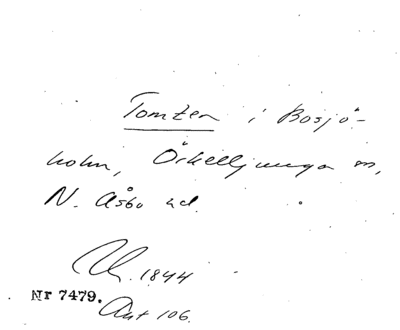 Tomten i Bosjö-
holm, Örkelljunga sn,
N. Åsbo hd.
Ch. 1844
Nr 7479.
Ant 106.